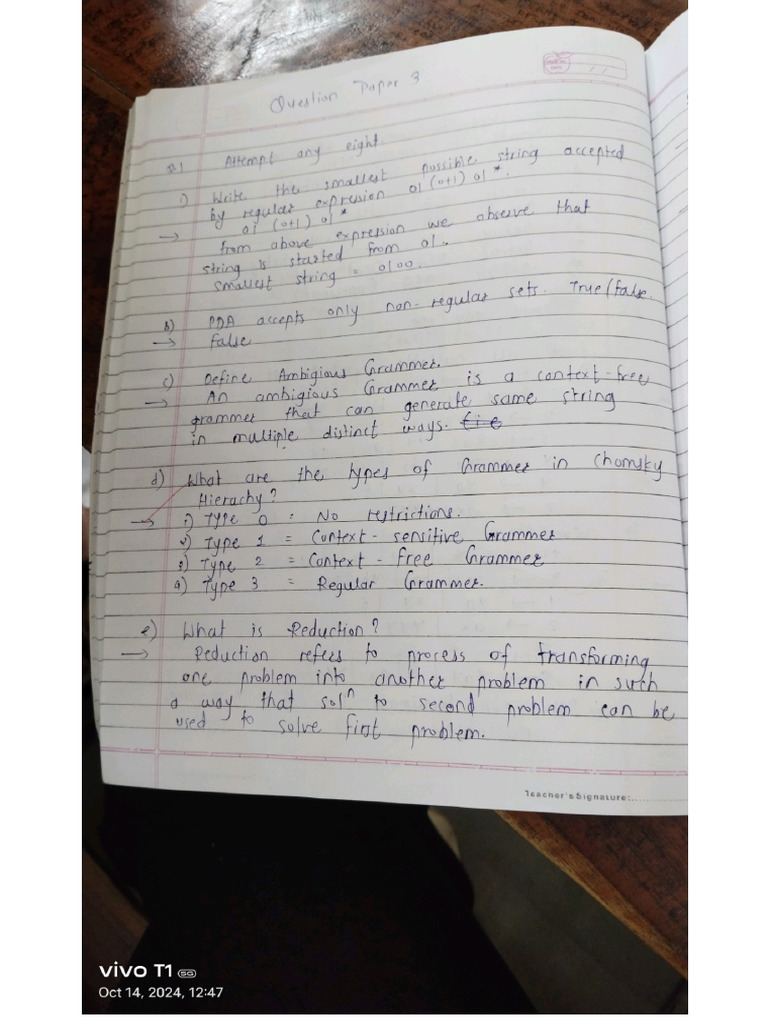 Question Paper 3
Q.1 Attempt any eight.
i) Write the smallest possible string accepted
by regular expression 01 (0+1) 01*.
→ 01 (0+1) 01*
from above expression we observe that
string is started from 01.
smallest string = 0100.
b) PDA accepts only non-regular sets. True/false.
→ false
c) Define Ambigious Grammer.
→ An ambigious Grammer is a context-free
grammer that can generate same string
in multiple distinct ways.
d) What are the types of Grammer in Chomsky
Hierachy?
→ 1) Type 0 = No restrictions.
2) Type 1 = Context-sensitive Grammer
3) Type 2 = Context-Free Grammer
4) Type 3 = Regular Grammer.
e) What is Reduction?
→ Reduction refers to process of transforming
one problem into another problem in such
a way that solⁿ to second problem can be
used to solve first problem.
Teacher's Signature:.....
vivo T1 5G
Oct 14, 2024, 12:47